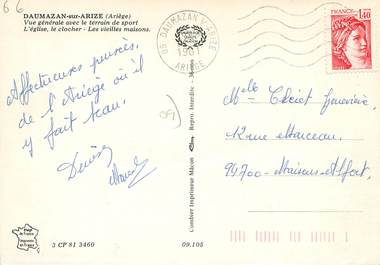 66
DAUMAZAN-sur-ARIZE (Ariège)
Vue générale avec le terrain de sport
L'église, le clocher - Les vieilles maisons.
09 DAUMAZAN S/ ARIZE
ARIEGE
FRANCE
1,40
Affectueuses pensées,
de l'Ariège où il
y fait beau.
Denise
09
Combier Imprimeur Mâcon
Repro. Interdite
Melle Geneviève
12 rue Marceau
94700 - Maisons-Alfort
3 CP 81 3460
09.105